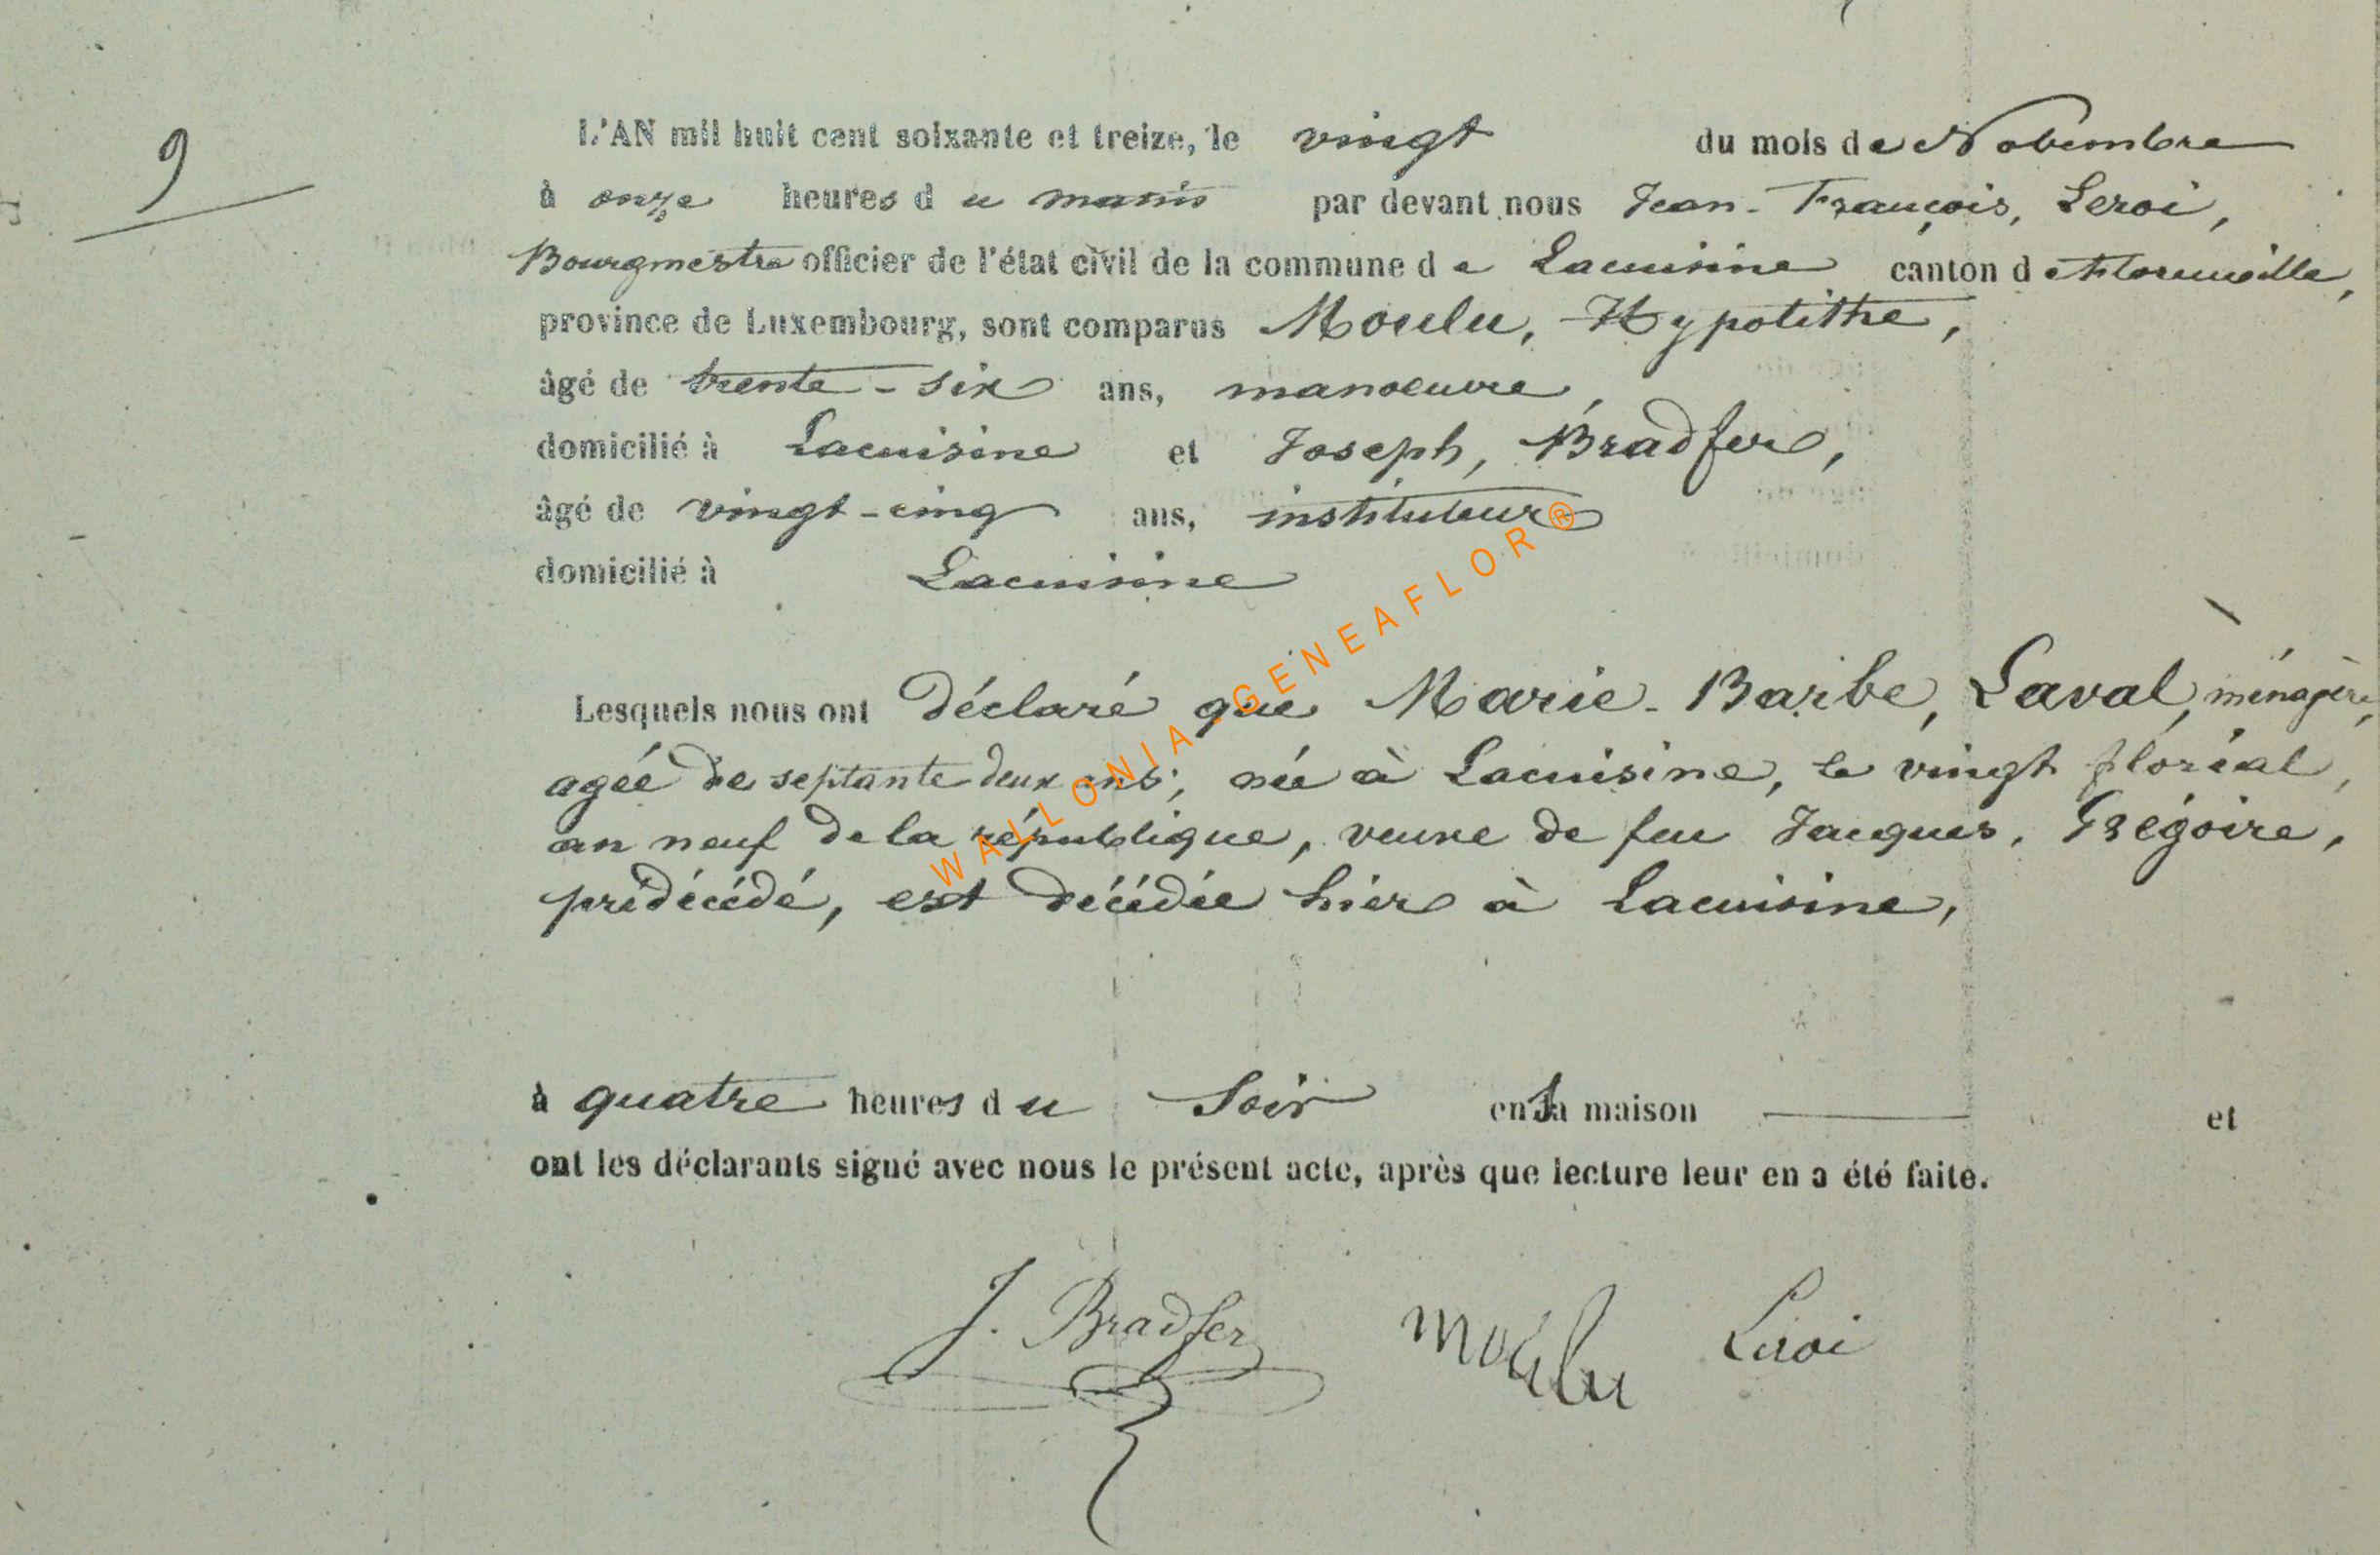 9
L'AN mil huit cent soixante et treize, le vingt du mois de Novembre
à onze heures du matin par devant nous Jean-François, Leroi,
Bourgmestre officier de l'état civil de la commune de Lacuisine canton de Florenville,
province de Luxembourg, sont comparus Moulu, Hypolithe,
âgé de trente-six ans, manoeuvre,
domicilié à Lacuisine et Joseph, Bradfer,
âgé de vingt-cinq ans, instituteur
domicilié à Lacuisine
Lesquels nous ont déclaré que Marie-Barbe, Laval, ménagère,
agée de septante deux ans; née à Lacuisine, le vingt floréal,
an neuf de la république, veuve de feu Jacques, Grégoire,
prédécédé, est décédée hier à Lacuisine,
à quatre heures du Soir en sa maison et
ont les déclarants signé avec nous le présent acte, après que lecture leur en a été faite.
J. Bradfer Moulu Leroi
WALLONIA GENEAFLOR ®